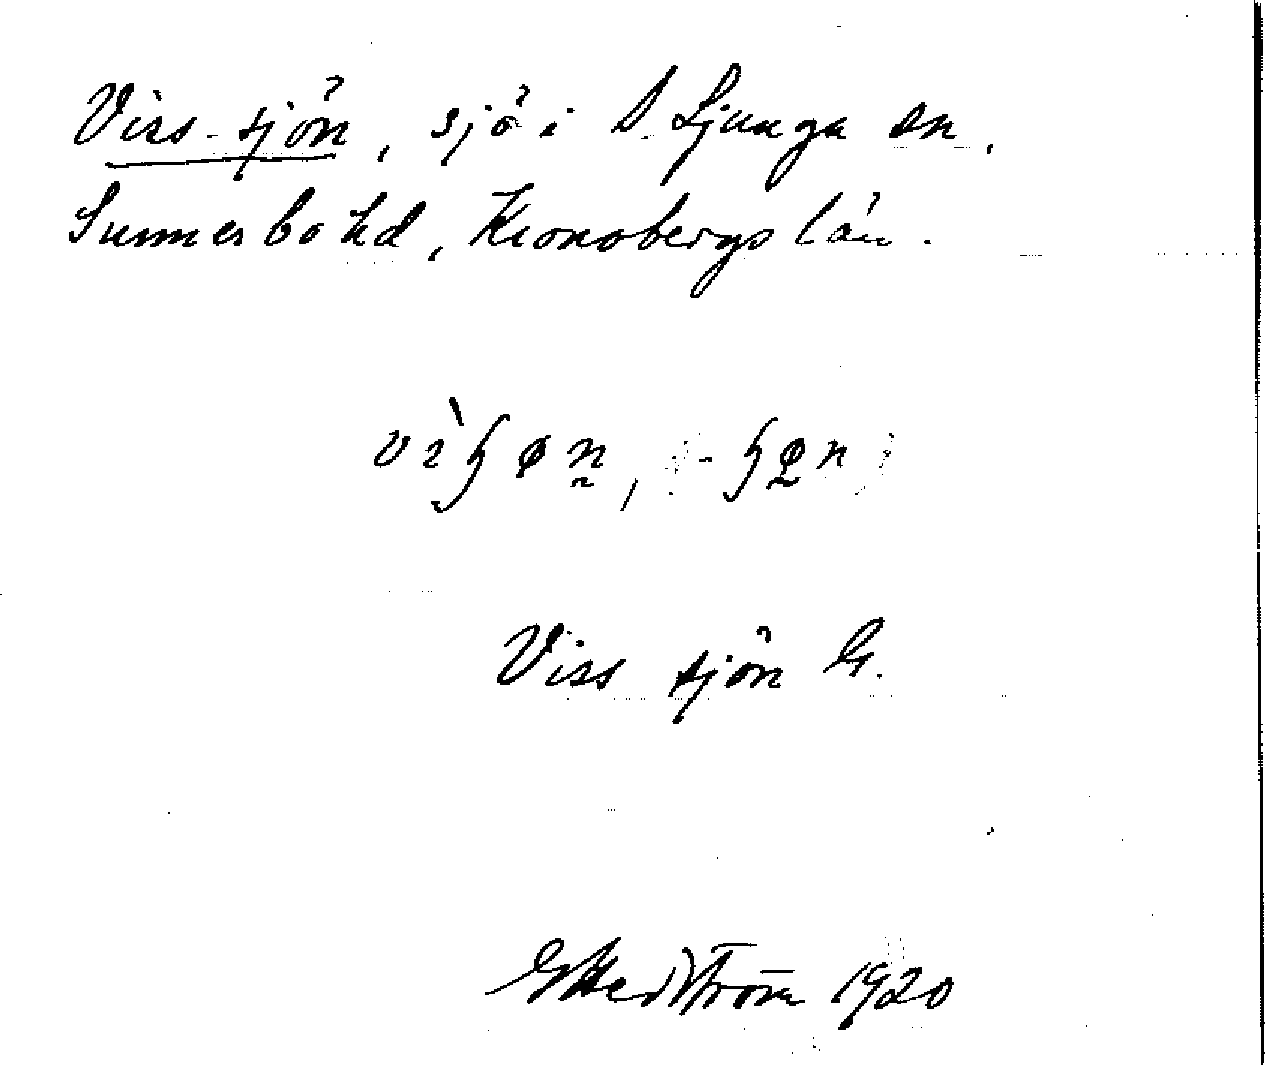 Viss-sjön, sjö i S. Ljunga sn,
Sunnerbo hd, Kronobergs län.
Viss sjön G.
G Hedström 1920